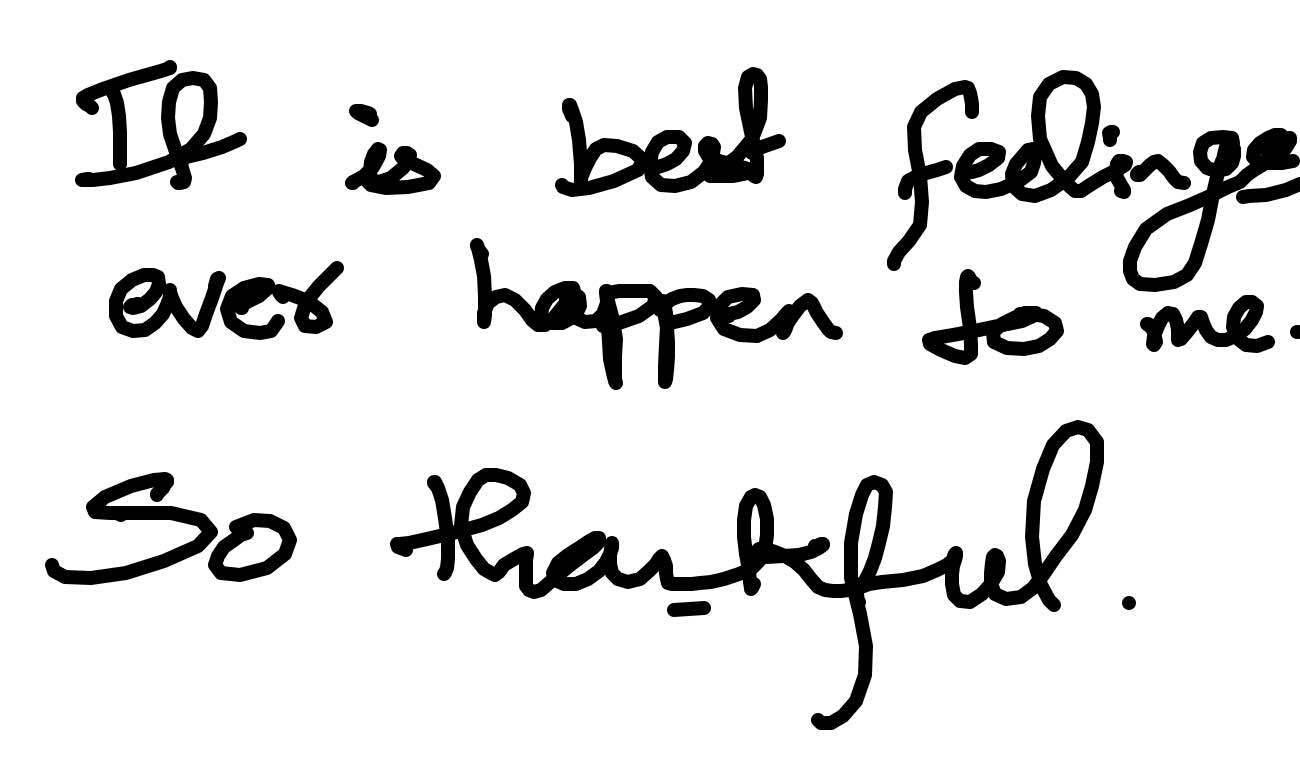 It is best feelings
ever happen to me.
So thankful.